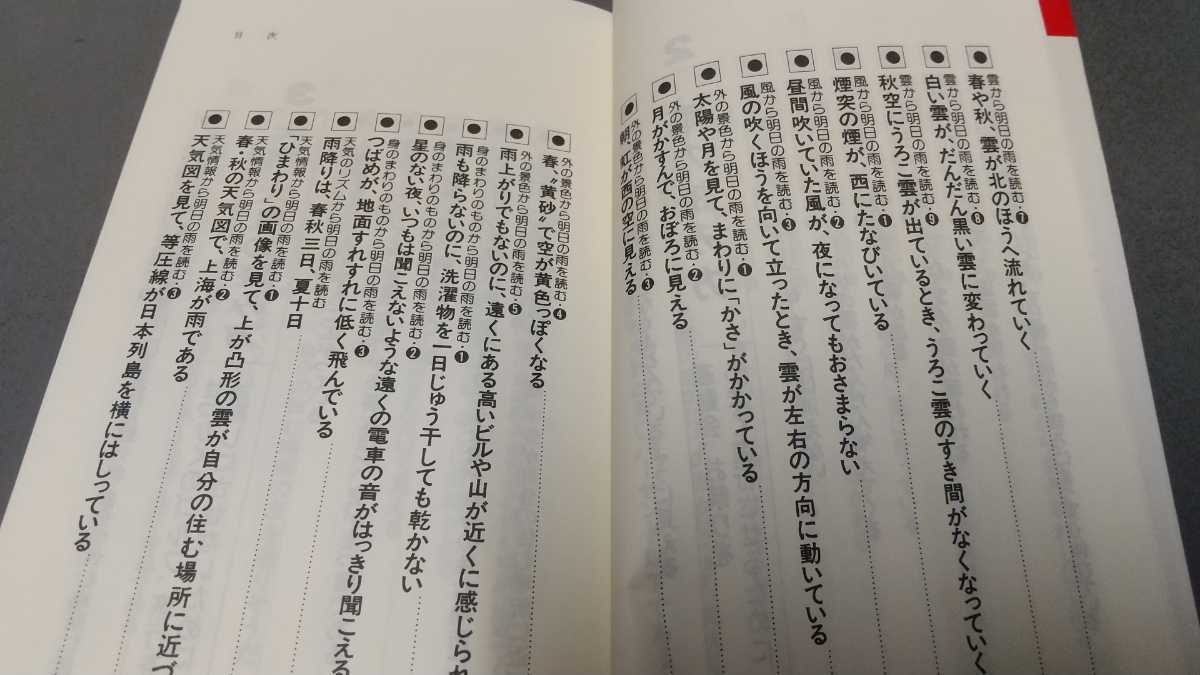 雲から明日の雨を読む・❼
春や秋、雲が北のほうへ流れていく
雲から明日の雨を読む・❽
白い雲が、だんだん黒い雲に変わっていく
雲から明日の雨を読む・❾
秋空にうろこ雲が出ているとき、うろこ雲のすき間がなくなっていく
風から明日の雨を読む・❶
煙突の煙が、西にたなびいている
風から明日の雨を読む・❷
昼間吹いていた風が、夜になってもおさまらない
風から明日の雨を読む・❸
風の吹くほうを向いて立ったとき、雲が左右の方向に動いている
外の景色から明日の雨を読む・❶
太陽や月を見て、まわりに「かさ」がかかっている
外の景色から明日の雨を読む・❷
月がかすんで、おぼろに見える
外の景色から明日の雨を読む・❸
朝、虹が西の空に見える
目次
外の景色から明日の雨を読む・❹
春、〝黄砂〟で空が黄色っぽくなる
外の景色から明日の雨を読む・❺
雨上がりでもないのに、遠くにある高いビルや山が近くに感じられ
身のまわりのものから明日の雨を読む・❶
雨も降らないのに、洗濯物を一日じゅう干しても乾かない
身のまわりのものから明日の雨を読む・❷
星のない夜、いつもは聞こえないような遠くの電車の音がはっきり聞こえる
身のまわりのものから明日の雨を読む・❸
つばめが、地面すれすれに低く飛んでいる
天気のリズムから明日の雨を読む
雨降りは、春秋三日、夏十日
天気情報から明日の雨を読む・❶
「ひまわり」の画像を見て、上が凸形の雲が自分の住む場所に近づ
天気情報から明日の雨を読む・❷
春・秋の天気図で、上海が雨である
天気情報から明日の雨を読む・❸
天気図を見て、等圧線が日本列島を横にはしっている